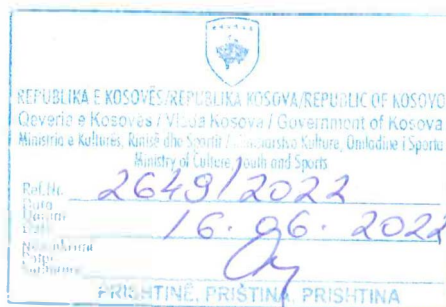 REPUBLIKA E KOSOVËS/REPUBLIKA KOSOVA/REPUBLIC OF KOSOVO
Qeveria e Kosovës / Vlada Kosova / Government of Kosova
Ministria e Kulturës, Rinisë dhe Sportit / Kulture, Omladine i Sporta
Ministry of Culture, Youth and Sports
Ref.Nr. 2649/2022
Data
Datum
Date 16.06.2022
PRISHTINË, PRIŠTINA, PRISHTINA